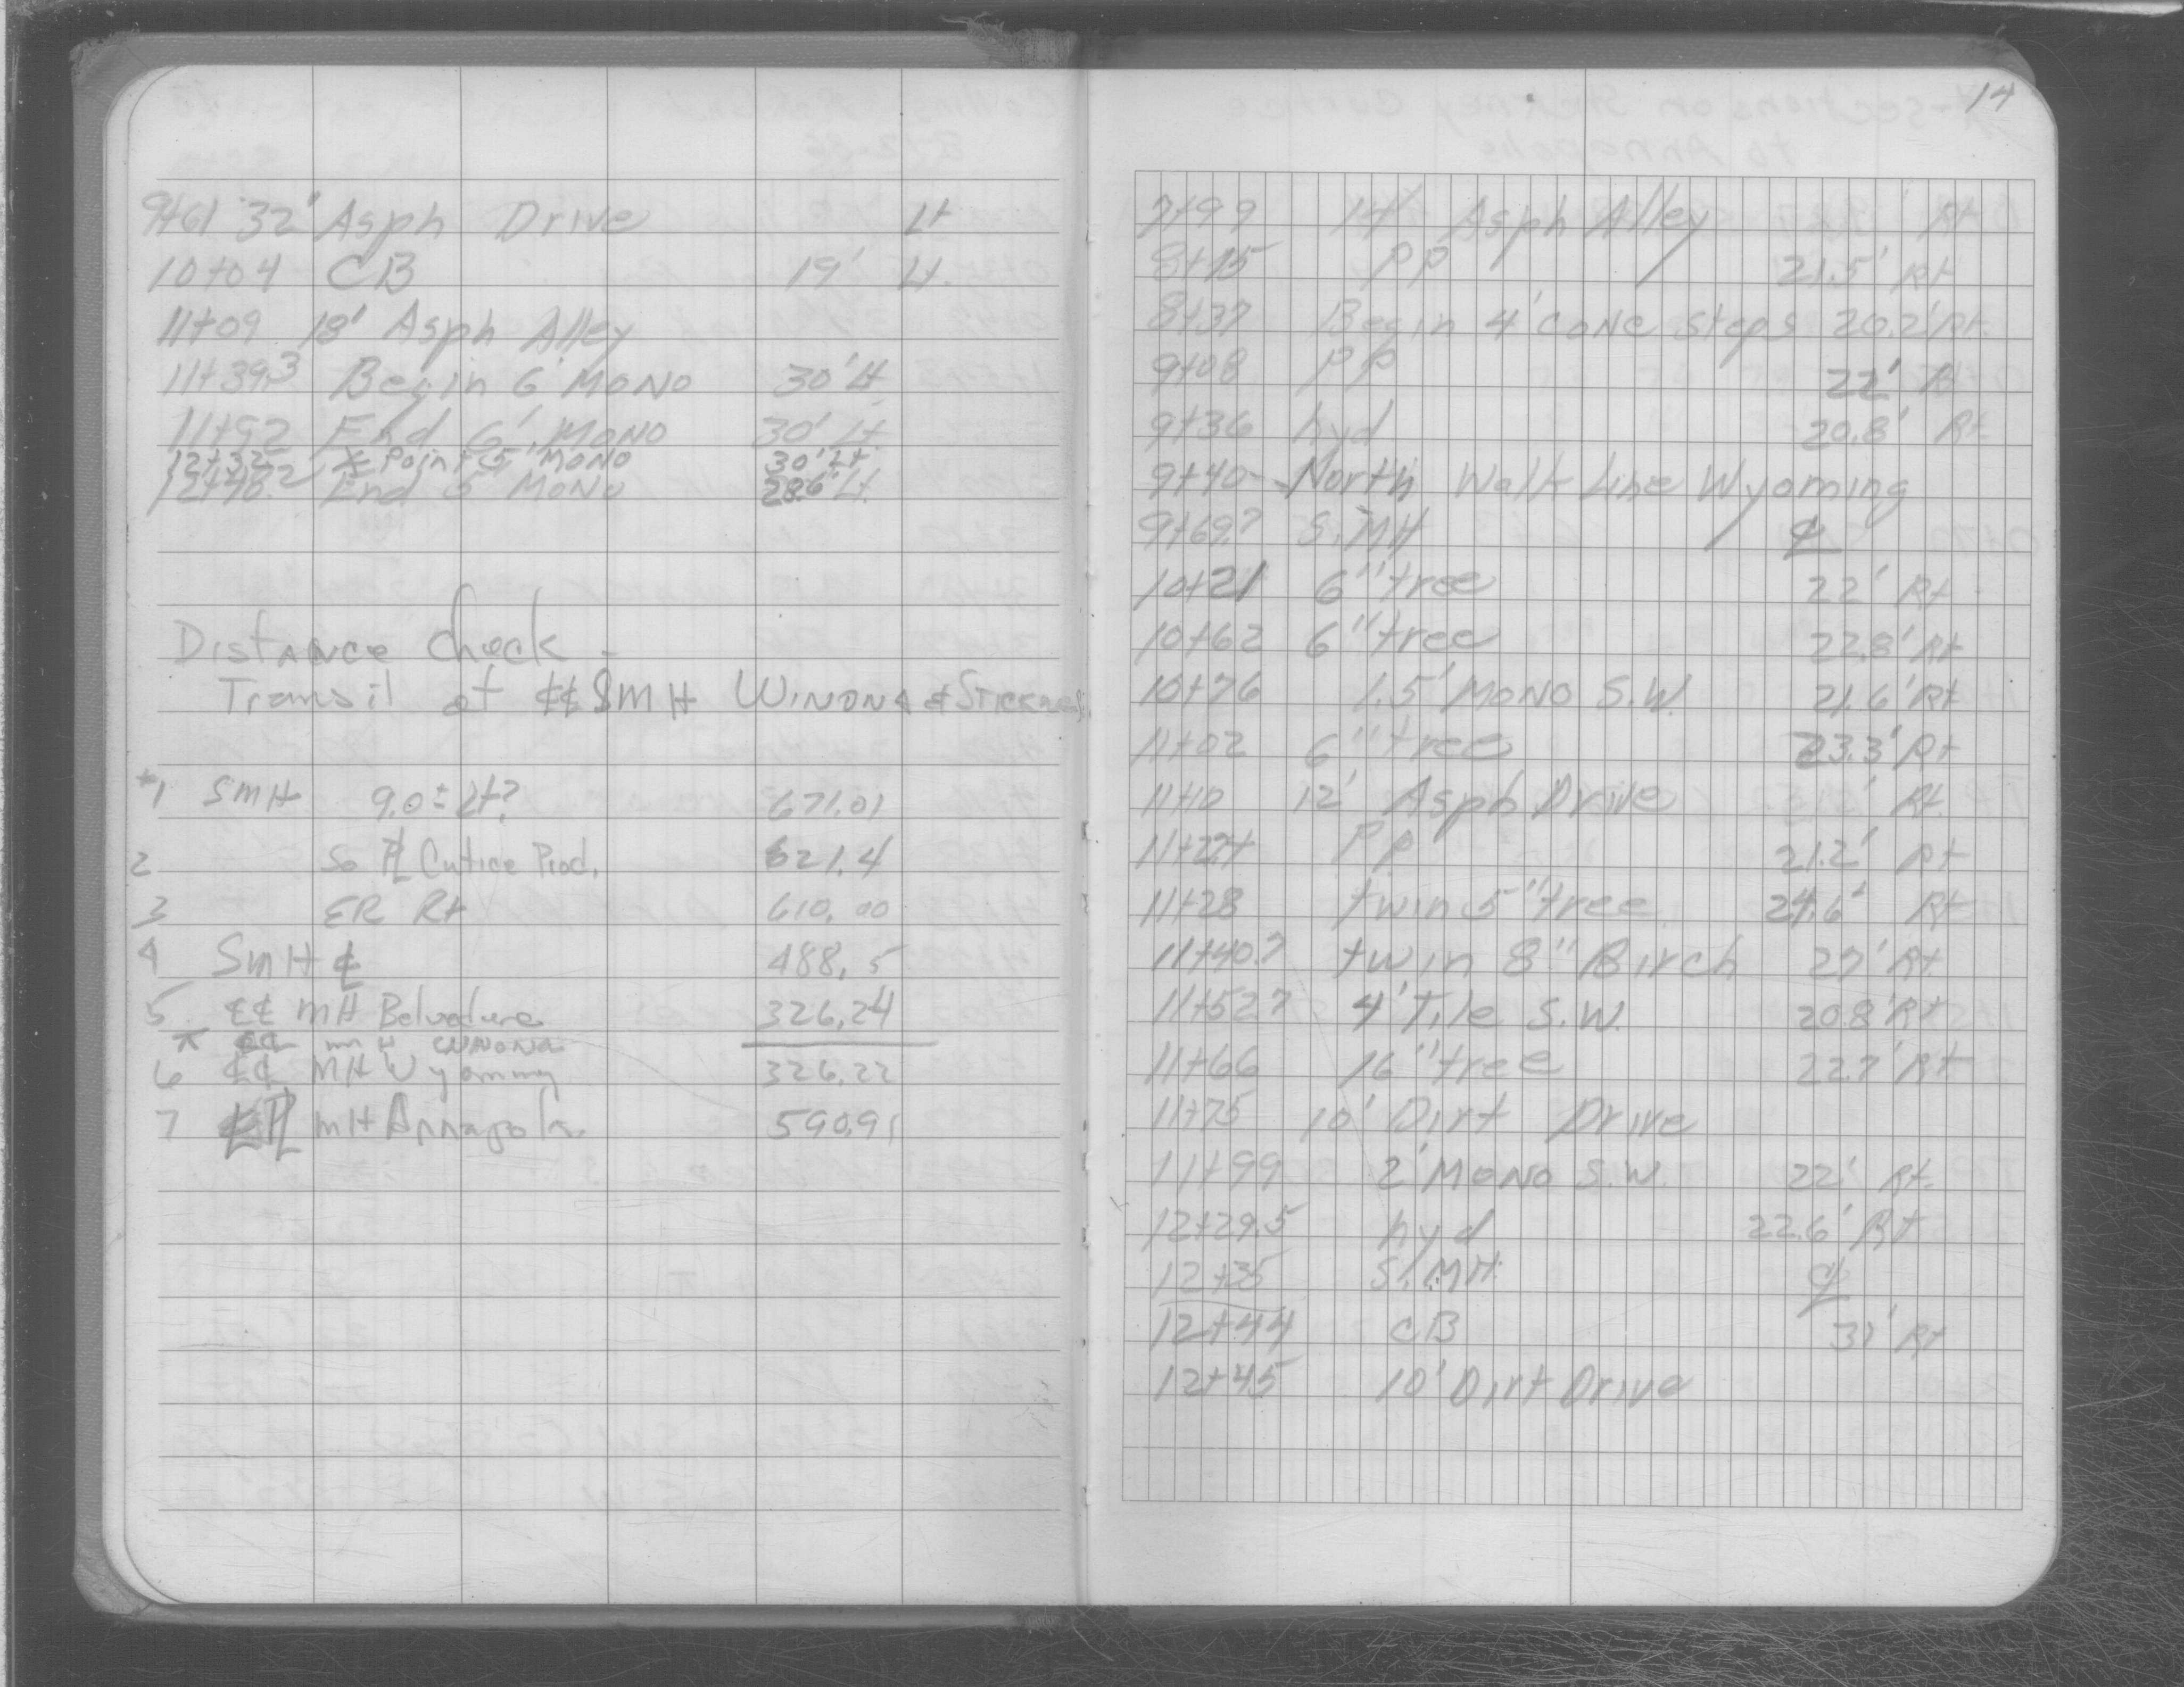 9+61 32' Asph Drive Lt
10+04 CB 19' Lt.
11+09 18' Asph Alley
11+39.3 Begin 6' MONO 30' Lt
11+92 End 6' MONO 30' Lt
12+32 Point 5' MONO 30' Lt
12+48.2 End 5' MONO 28.6' Lt.
Distance Check -
Transit at ℄℄ SMH WINONA & STICKNEY
1 SMH 9.0± Lt? 671.01
2 So ⅊ Cutice Prod. 621.4
3 ER Rt 610.00
4 SMH ℄ 488.5
5 ℄℄ MH Belvedere 326.24
⊼ ℄℄ MH WINONA
6 ℄℄ MH Wyoming 326.22
7 ⅊ MH Annapolis 590.91
14
7+99 14' Asph Alley Rt
8+15 PP 21.5' Rt
8+37 Begin 4' conc steps 20.2' Rt.
9+08 PP 22' Rt
9+36 hyd 20.8' Rt
9+40 North Walk Line Wyoming
9+69.7 S.MH ℄
10+21 6" tree 22' Rt
10+62 6" tree 22.8' Rt
10+76 1.5' MONO S.W. 21.6' Rt
11+02 6" tree 23.3' Rt
11+10 12' Asph Drive Rt.
11+22 PP 21.2' Rt
11+28 twin 5" tree 24.6' Rt
11+40.7 twin 8" Birch 27' Rt
11+52.7 4' Tile S.W. 20.8' Rt
11+66 16" tree 22.7' Rt
11+75 10' Dirt Drive
11+99 2' MONO S.W. 22' Rt.
12+29.5 hyd 22.6' Rt
12+35 S.MH ℄
12+44 CB 31' Rt
12+45 10' Dirt Drive